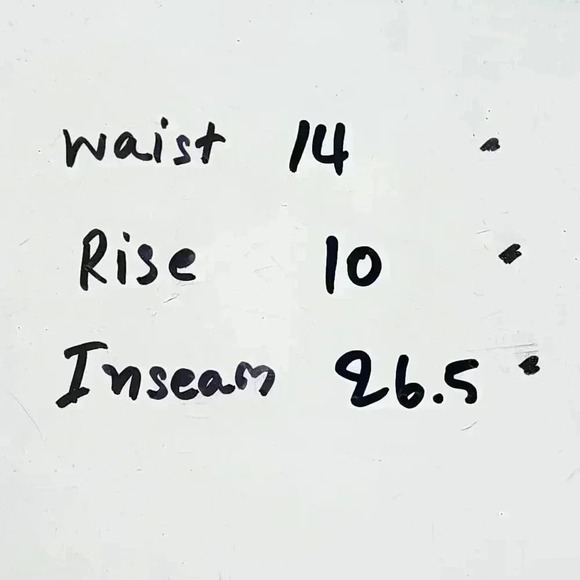 Waist 14
Rise 10
Inseam 26.5